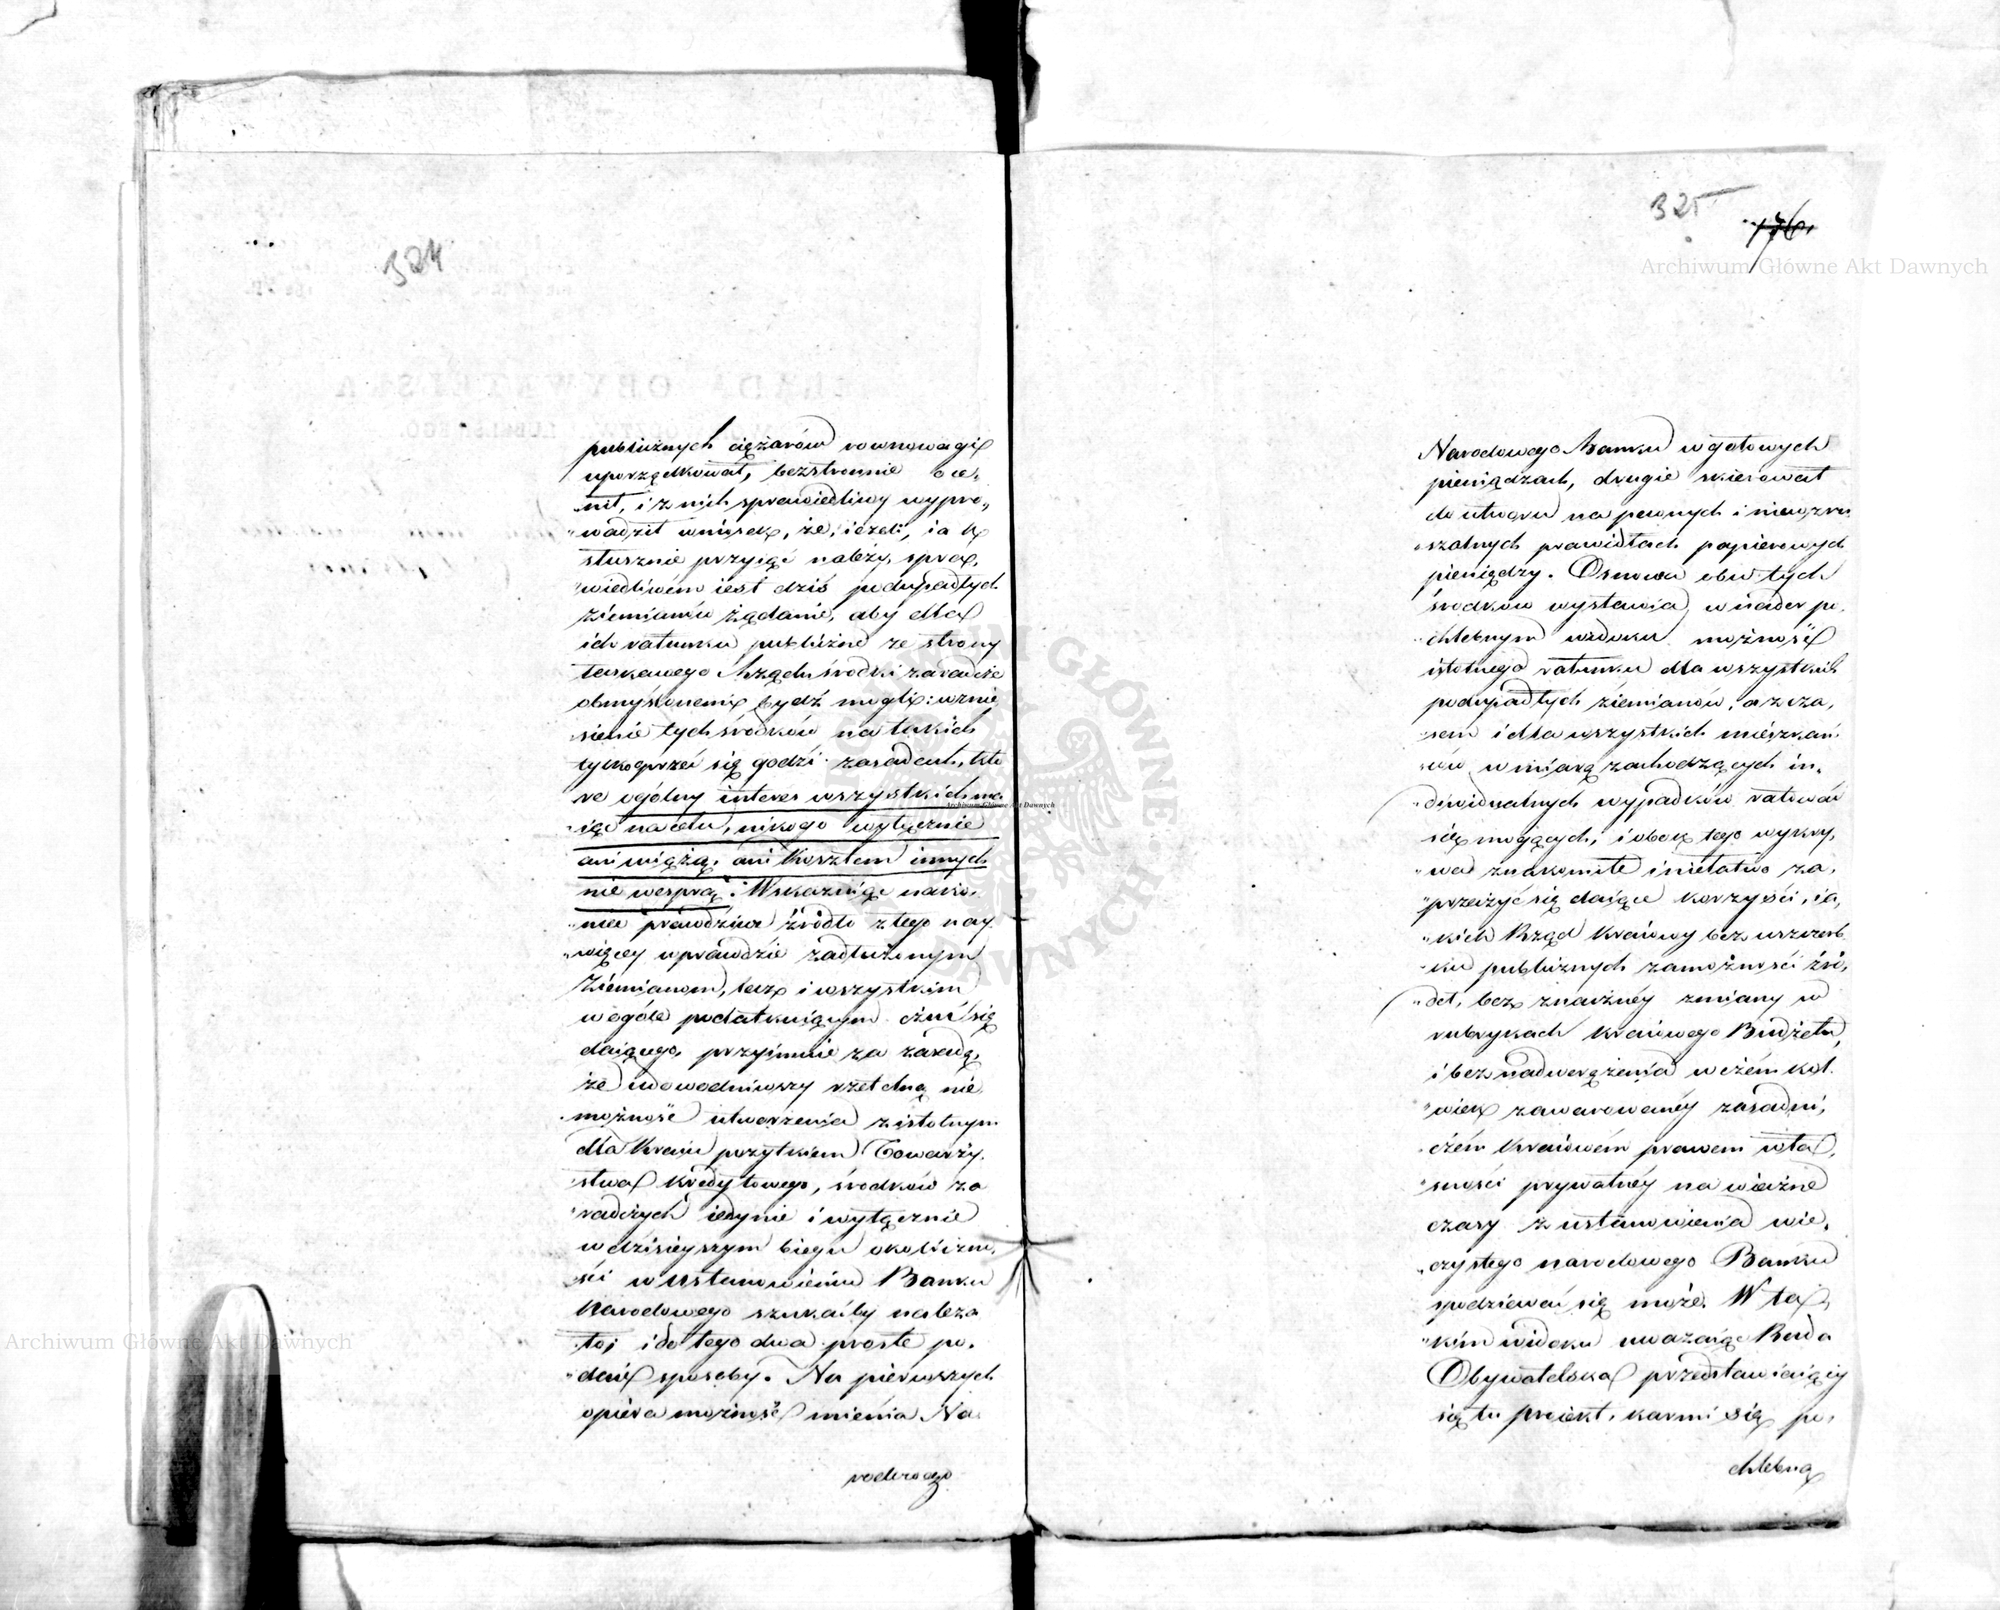 324
publicznych ciężarów rownowagi
uporządkował, bezstronnie oce„
nił, i z nich sprawiedliwy wypro„
„wadził wniosek, że; ieżeli, iak
słusznie przyiąć należy, spra„
„wiedliwem iest dziś podupadłych
ziemianów żądanie, aby dla
ich ratunku publiczne ze strony
łaskawego Rządu środki zaradcze
obmyślonemi bydź mogli: wznie
sienie tych środków na takich
tylko przeć się godzi zasadach, któ
re ogólny interes wszystkich ma
iąc na celu, nikogo wyłącznie
ani wiążą, ani kosztem innych
nie wesprą: Wskazuiąc nako„
„niec prawdziwe źródło z tego nay
„więcey wprawdzie zadłużonym
Ziemianom, lecz i wszystkim
w ogóle podatkuiącym czuć się
daiącego, przyimuie za zasadę,
że udowodniwszy rzetelną nie
„możność utworzenia z istotnym
dla Kraiu pożytkiem Towarzy„
stwa Kredytowego, środków za
„radczych iedynie i wyłącznie
w dzisieyszym biegu okoliczno„
„ści w ustanowieniu Banku
Narodowego szukaćby należa
„ło; i do tego dwa proste po„
„daie sposoby. Na pierwszych
opiera możność mienia Na„
rodowego
325
176.
Narodowego Banku w gotowych
pieniądzach, drugie skierował
do utworu na pewnych i niewzru
„szalnych prawidłach papierowych
pieniędzy. Osnowa obu tych
środków wystawia w nader po„
„chlebnym widoku możność
istotnego ratunku dla wszystkich
podupadłych ziemianów, a z cza„
„sem i dla wszystkich mieszkań„
„ców w miarę zachodzących in„
„dywidualnych wypadków ratować
się mogących, i obok tego wykry„
„wa znakomite i niełatwo za„
„przeczyć się daiące korzyści, ia„
„kich Rząd Kraiowy bez uszczerb
„ku publicznych zamożności źró„
„deł, bez znaczney zmiany w
rubrykach Kraiowego Budżetu,
i bez nadwerężenia w czémkol„
„wiek zawarowaney zasadni„
„czém Kraiowém prawem wła„
„sności prywatnéy na wieczne
czasy z ustanowienia wie„
„czystego narodowego Banku
spodziewać się może. W ta„
„kim widoku uważaiąc Rada
Obywatelska przedstawiaiący
się tu proiekt, karmi się po„
chlebną
Archiwum Główne Akt Dawnych
Archiwum Główne Akt Dawnych
Archiwum Główne Akt Dawnych